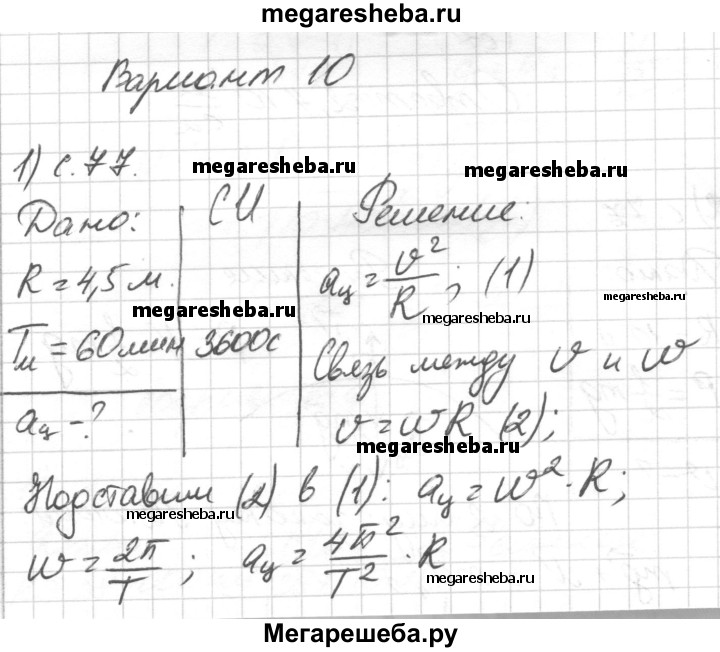 megaresheba.ru
Вариант 10
1) с. 77.
megaresheba.ru
megaresheba.ru
Дано:
СИ
Решение:
R = 4,5 м.
aц = v²/R; (1)
megaresheba.ru
megaresheba.ru
megaresheba.ru
Tм = 60 мин
3600 с
Связь между v и w
aц - ?
v = wR (2);
megaresheba.ru
Подставим (2) в (1): aц = w² · R;
megaresheba.ru
w = 2π/T; aц = 4π²/T² · R
megaresheba.ru
Мегарешеба.ру